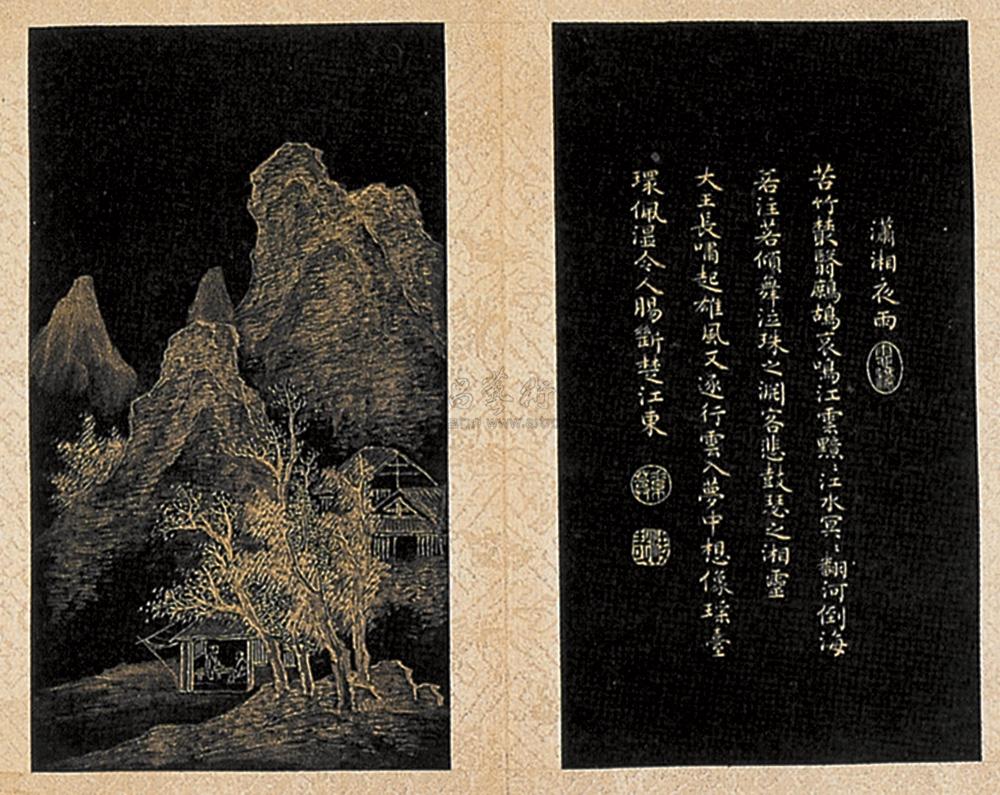 瀟湘夜雨
苦竹叢翳鷓鴣哀鳴江雲黯〻江水冥〻翻河倒海
若注若傾舞泣珠之淵客悲鼓瑟之湘靈
大王長嘯起雄風又逐行雲入夢中想像瑤臺
環佩濕令人腸斷楚江東